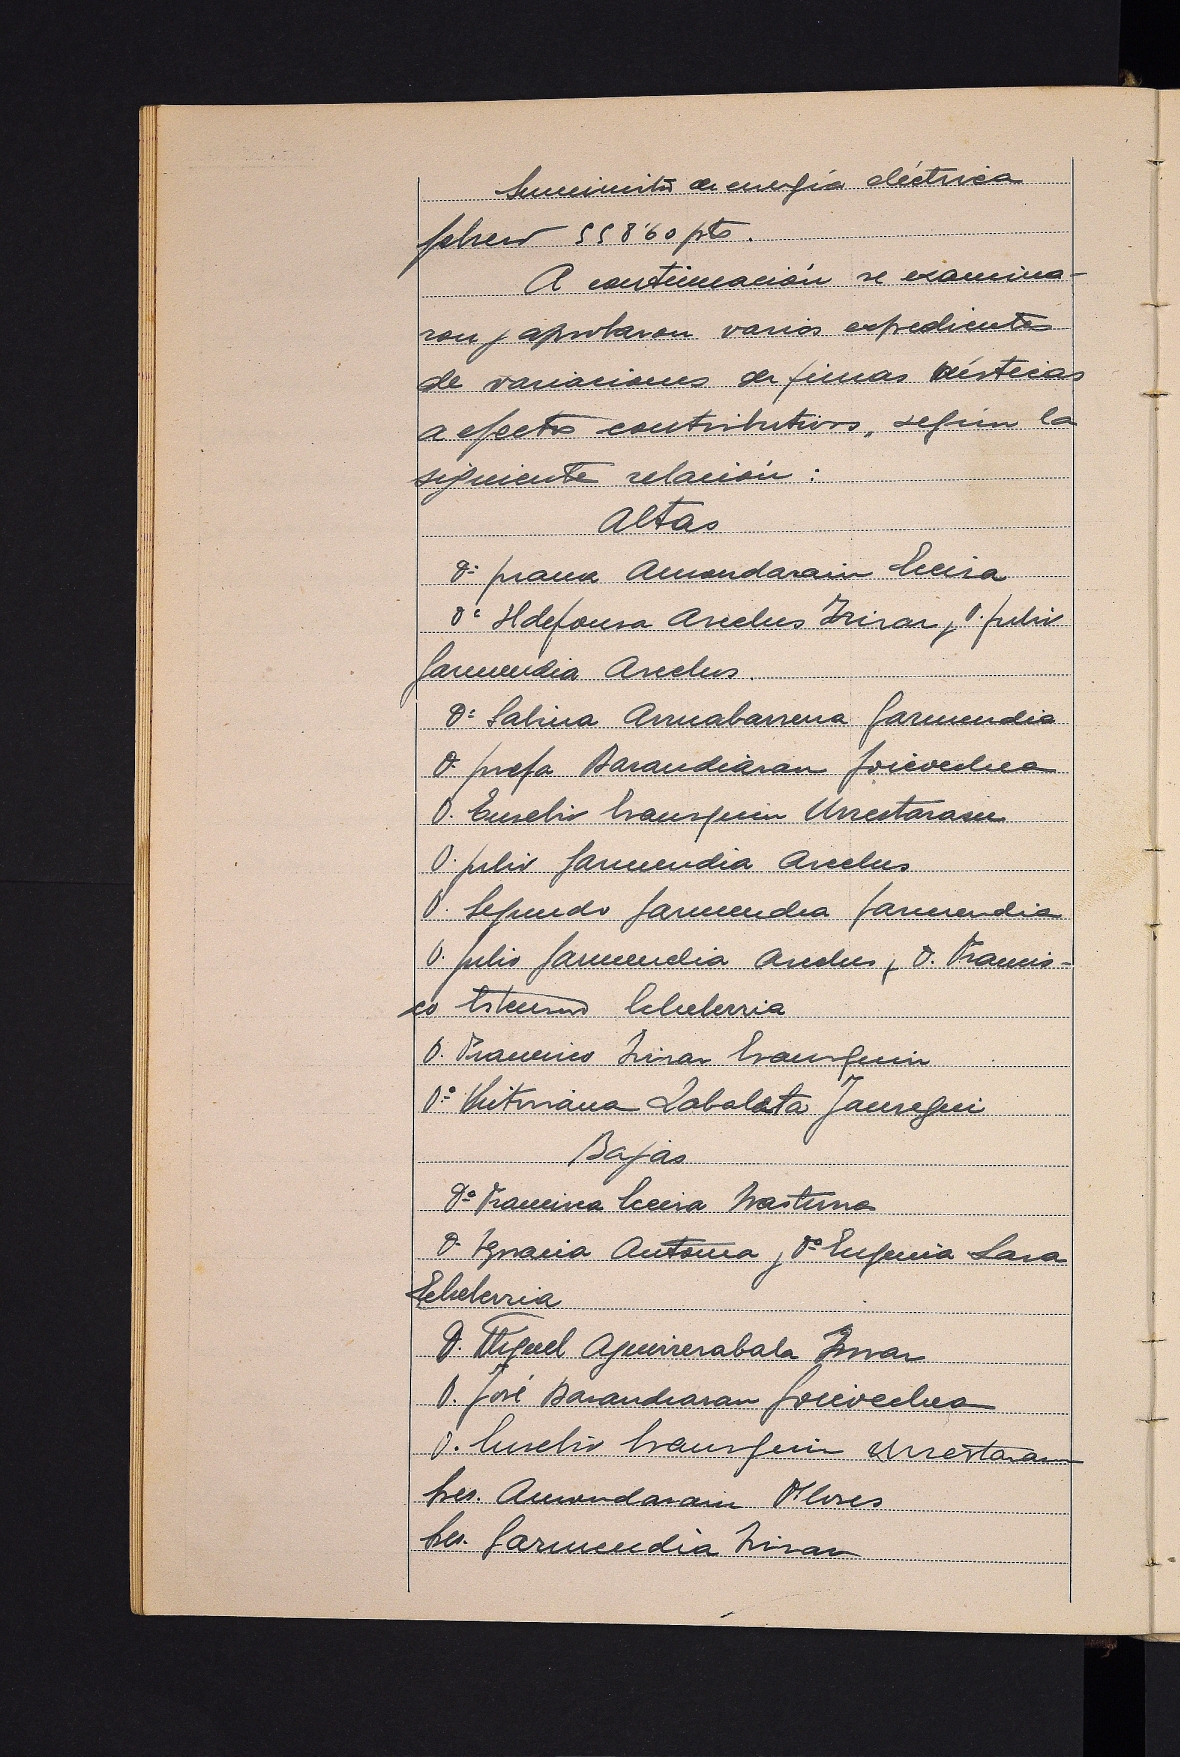 Suministro de energía eléctrica
febrero 558'60 pts.
A continuación se examina-
ron y aprobaron varios expedientes
de variaciones de fincas rústicas
a efectos contributivos, según la
siguiente relación:
Altas
Dª Juana Amondarain Eceiza
Dª Ildefonsa Arcelus Irizar y D. Julio
Garmendia Arcelus.
Dª Sabina Arruabarrena Garmendia
D. Josefa Barandiaran Goicoechea
D. Eusebio Eraunzquin Urrestarazu
D. Julio Garmendia Arcelus
D. Segundo Garmendia Garmendia
D. Julio Garmendia Arcelus y D. Francis-
co Echeberria
D. Francisco Irizar Eraunzquin
Dª Victoriana Zabaleta Jauregui
Bajas
Dª Francisca Eceiza
D. Ignacia Antonia y Dª Eugenia Lasa
Echeberria
D. Miguel Aguirrezabala Irizar
D. José Barandiaran Goicoechea
D. Eusebio Eraunzquin Urrestarazu
Hros. Amondarain Flores
Hros. Garmendia Irizar